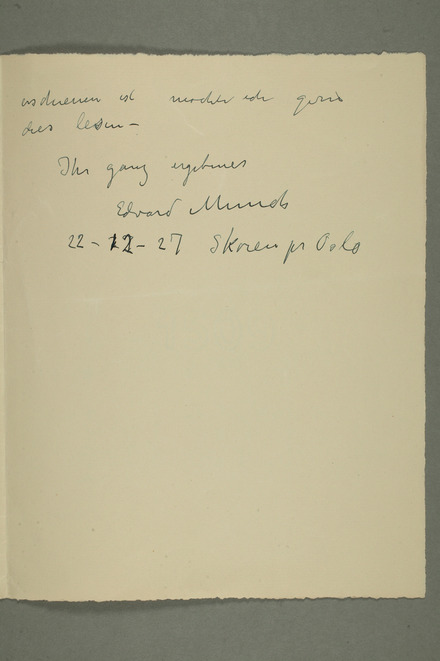 erschienen ist möchte ich gern
dies lesen –
Ihr ganz ergebener
Edvard Munch
22 – 12 – 27 Skøien pr Oslo